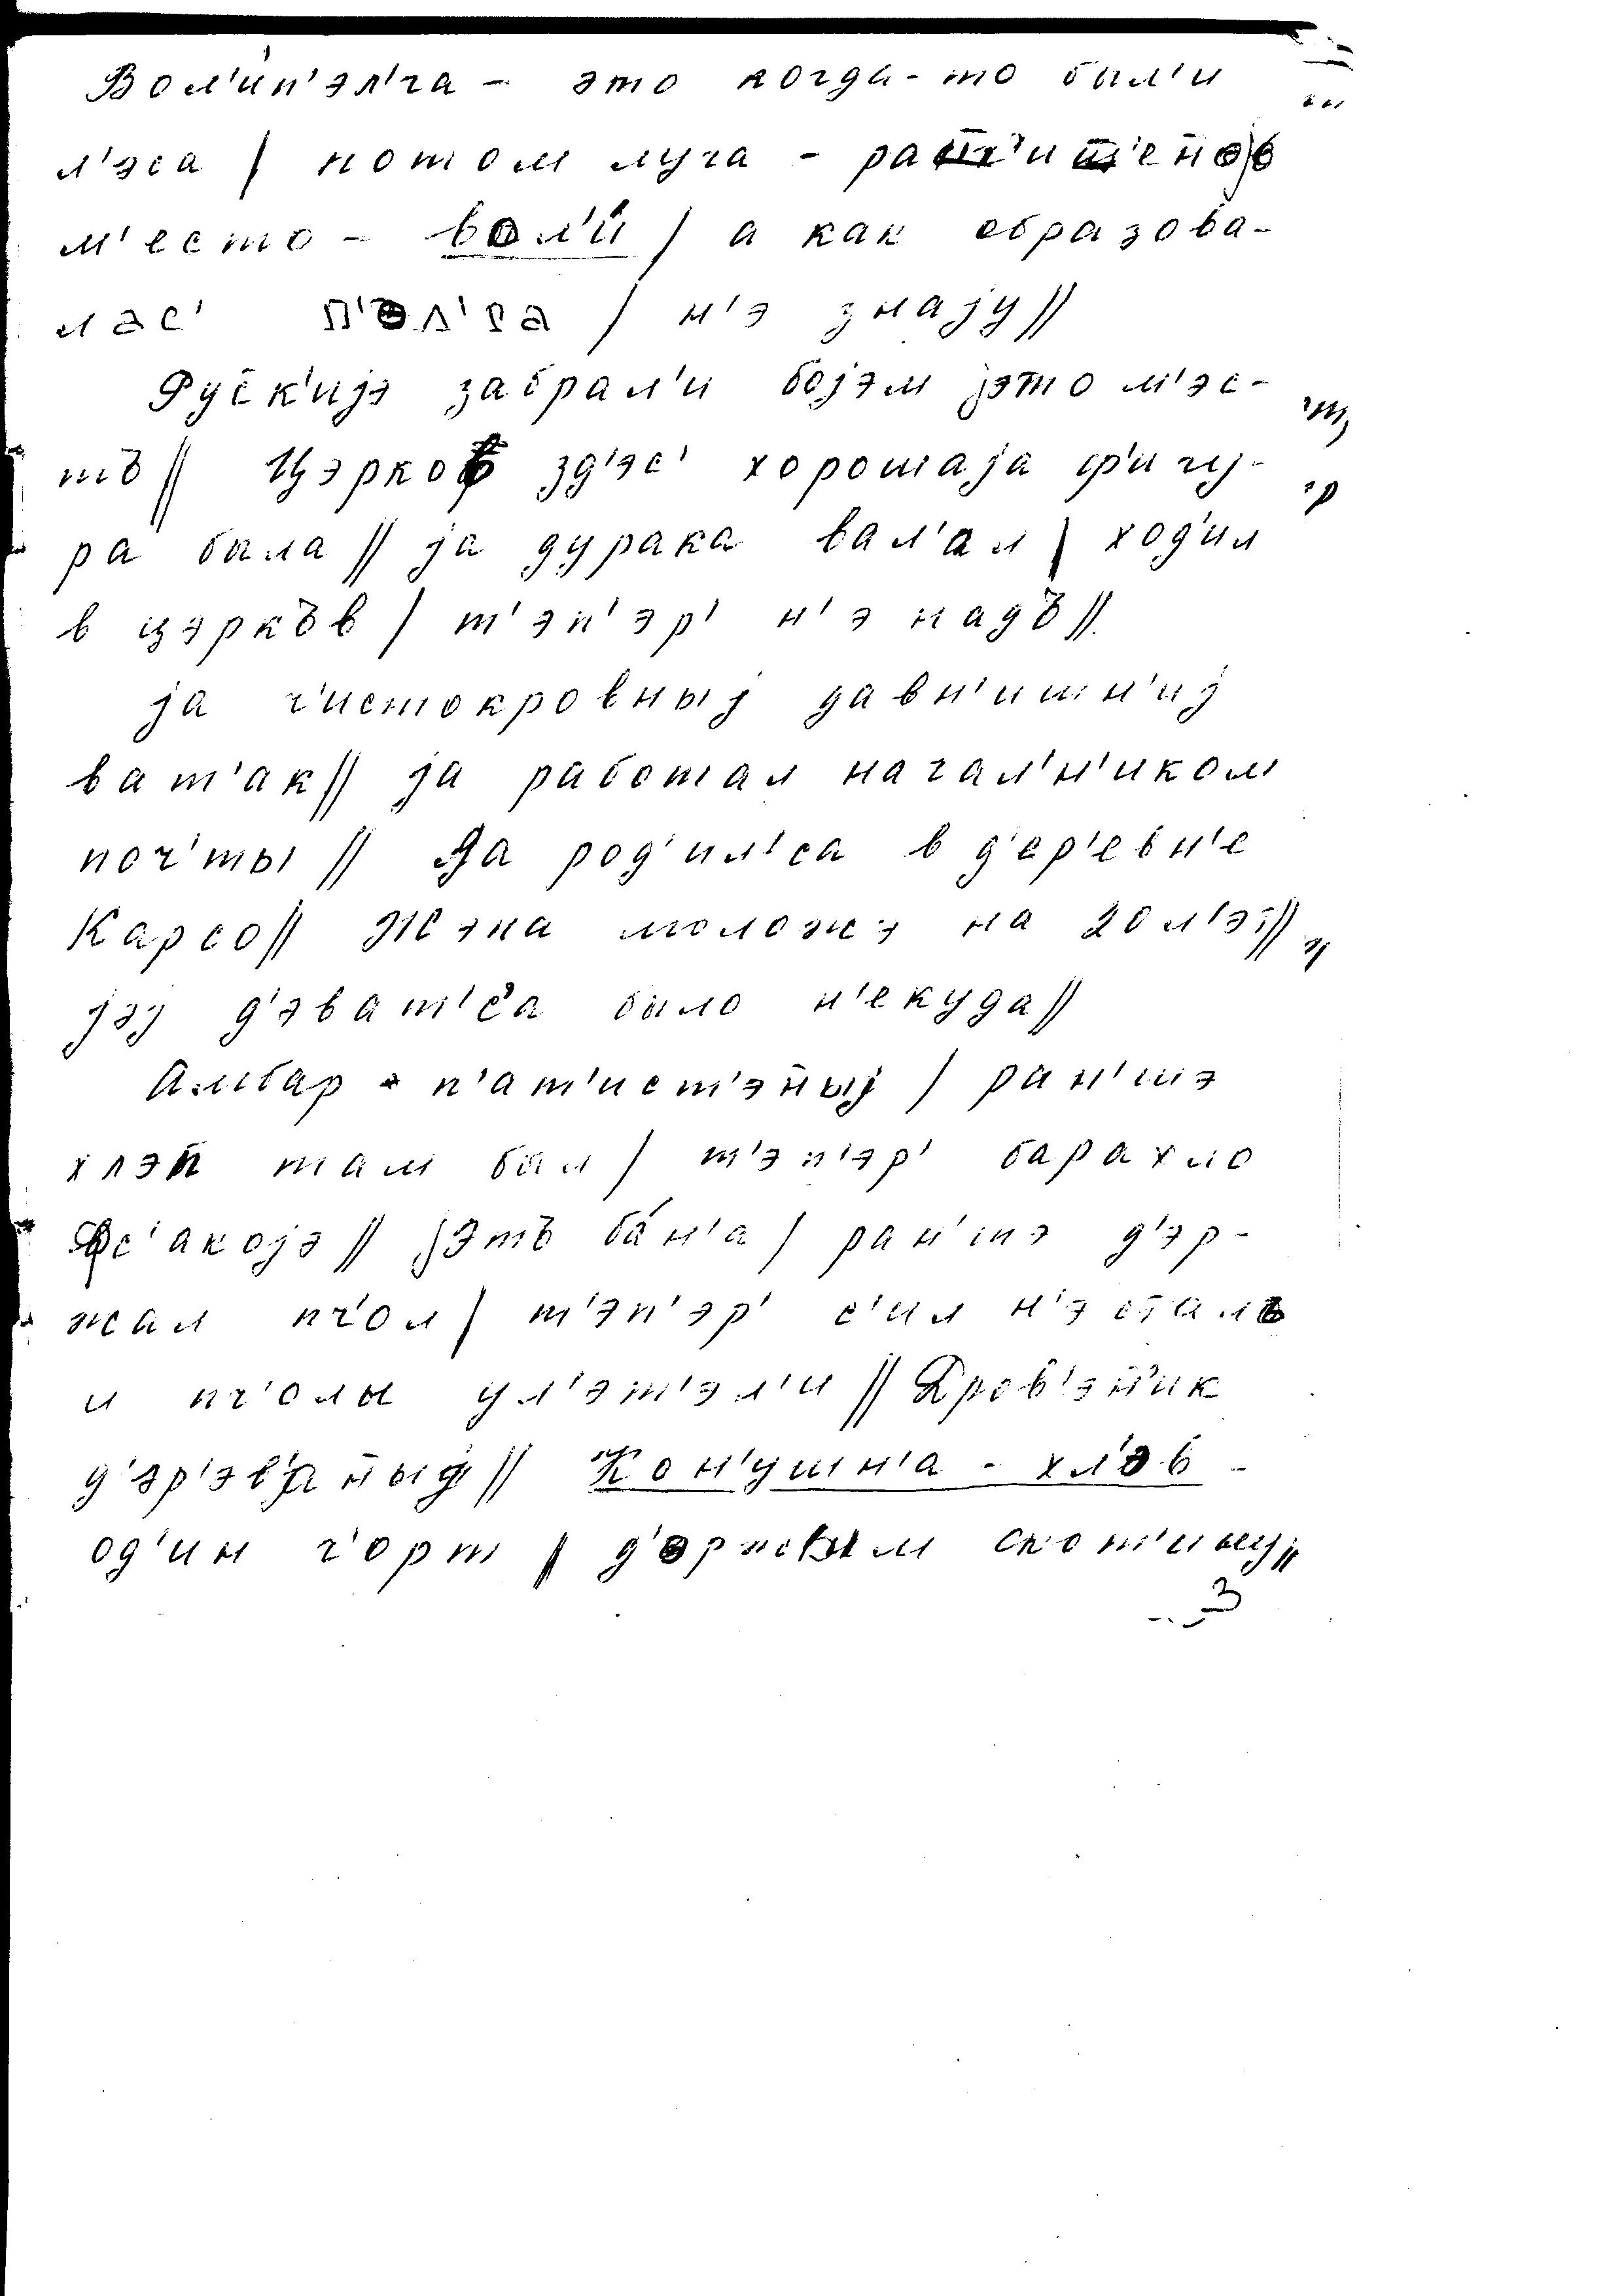 Вол'ип'эл'га – это когда-то был'и
л'эса / потом луга – 
м'есто – вол'и / а как образова-
лас' п'эл'га / н'э знаjу //
Рус̄к'иjэ забрал'и боjэм jэто м'эс-
тъ // Цэрков зд'эс' хорошаjа фигу-
ра бала // jа дурака вал'ал / ход'ил
в цэркъв / т'эп'эр' н'э надъ //
jа ч'истокровныj давн'ишн'иj
ват'ак // jа работал начал'н'иком
поч'ты // Jа род'ил'са в д'ер'евн'е
Карсо // Жэна моложэ на 20 л'эт //
jэj д'эват'с̄а было н'екуда //
Амбар – п'ат'ист'эн̄ыj / ран'шэ
хлэп там бал / т'эп'эр' барахло
фс'акоjэ // jэтъ ба́н'а / ран'шэ д'эр-
жал пч'ол / т'эп'эр' с'ил н'э сталъ
и пч'олы ул'эт'эл'и // Дров'эн̄'ик
д'эр'эв'ан̄ыj // Кон'ушн'а – хл'эв –
од'ин ч'орт / скот'ину //
3